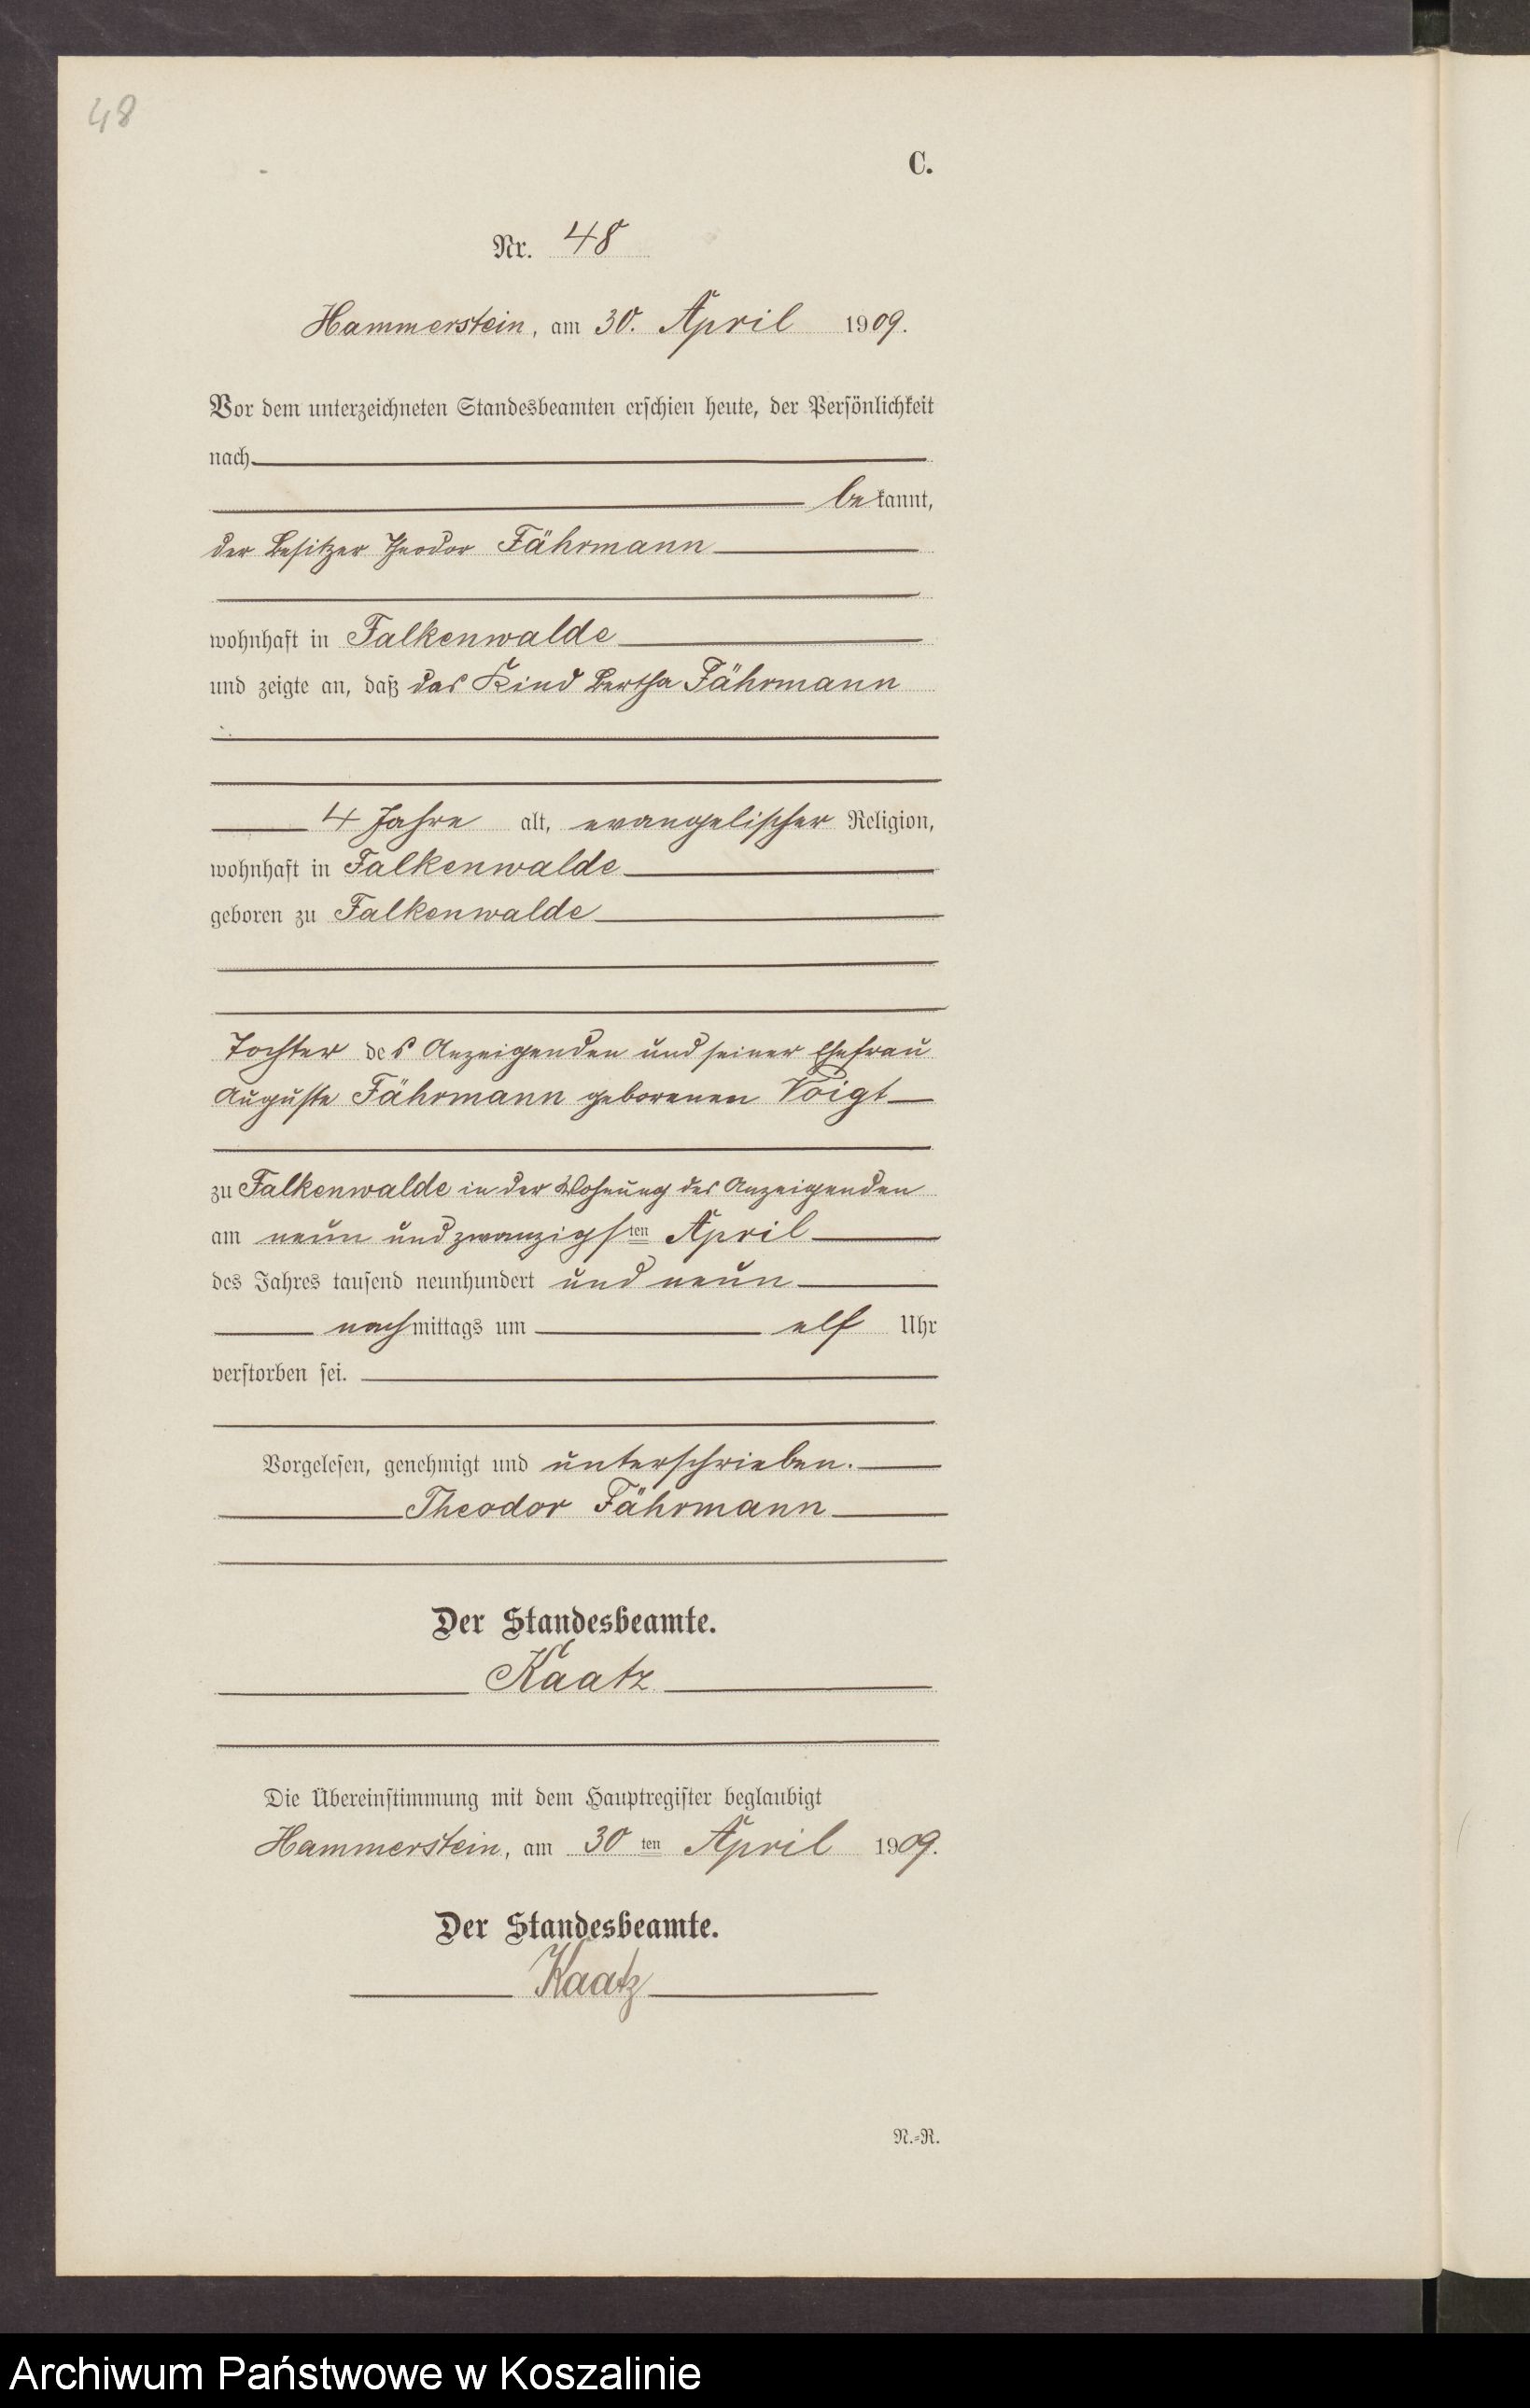 48
C.
Nr. 48
Hammerstein, am 30. April 1909.
Vor dem unterzeichneten Standesbeamten erschien heute, der Persönlichkeit
nach
bekannt,
der Besitzer Theodor Fährmann
wohnhaft in Falkenwalde
und zeigte an, daß das Kind Bertha Fährmann
4 Jahre alt, evangelischer Religion,
wohnhaft in Falkenwalde
geboren zu Falkenwalde
Tochter des Anzeigenden und seiner Ehefrau
Auguste Fährmann geborenen Voigt
zu Falkenwalde in der Wohnung des Anzeigenden
am neun und zwanzigsten April
des Jahres tausend neunhundert und neun
nachmittags um elf Uhr
verstorben sei.
Vorgelesen, genehmigt und unterschrieben.
Theodor Fährmann
Der Standesbeamte.
Kaatz
Die Übereinstimmung mit dem Hauptregister beglaubigt
Hammerstein, am 30 ten April 1909.
Der Standesbeamte.
Kaatz
N.=R.
Archiwum Państwowe w Koszalinie